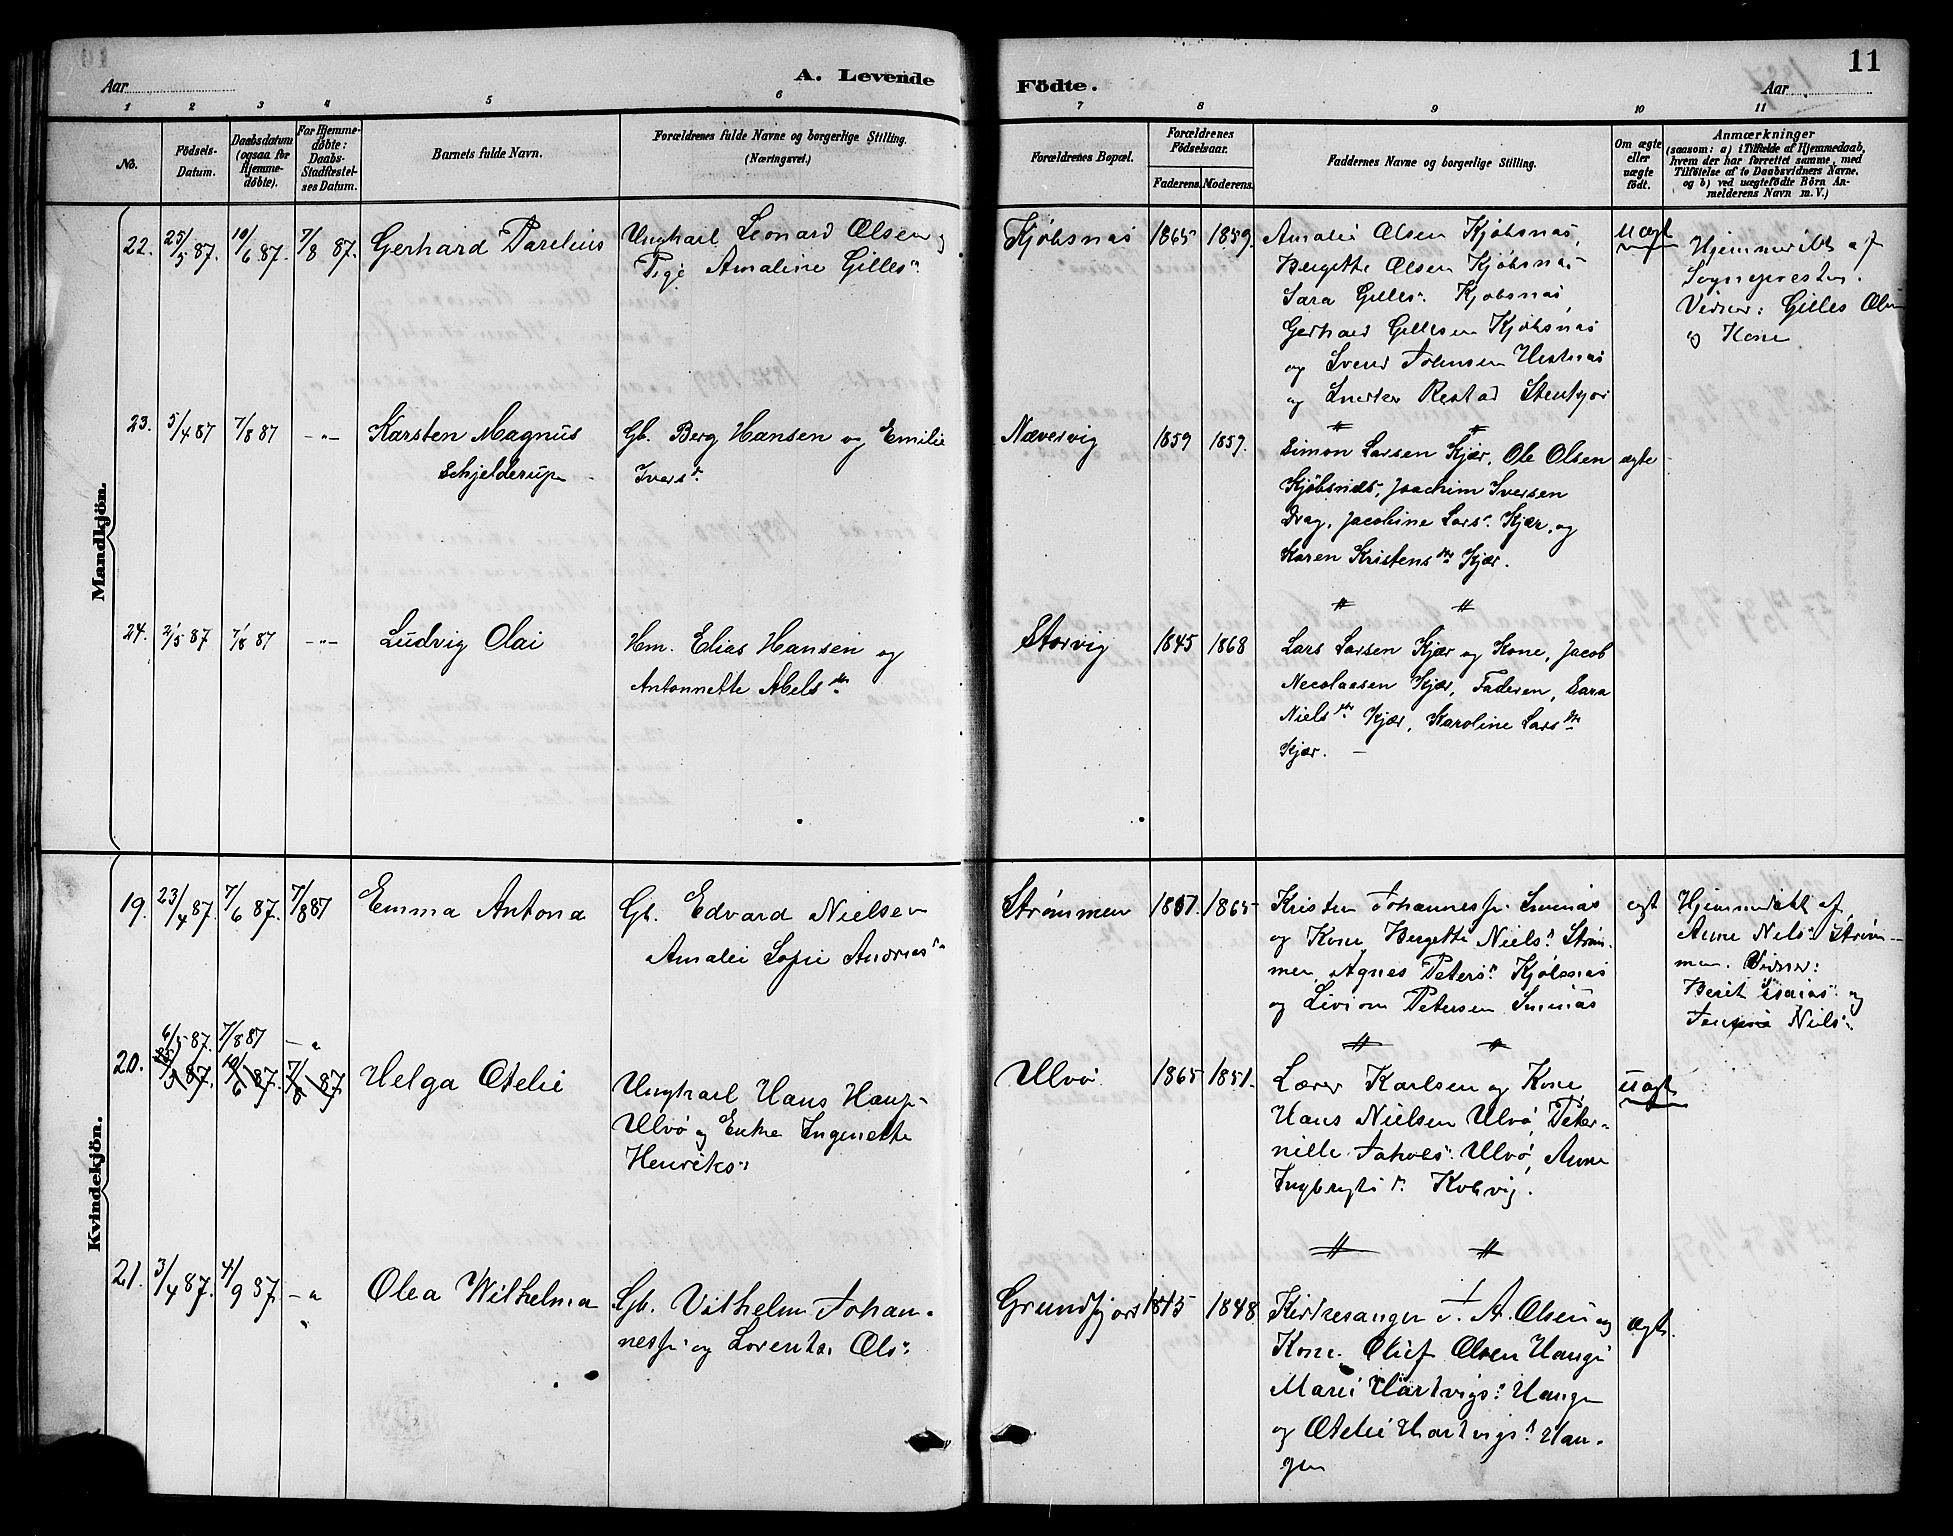 A. Levende
Födte.
11
Aar
Aar
1 2 3 4 5 6
7 8 9 10 11
No.
Födsels-
Datum.
Daabsdatum
(ogsaa for
Hjemme-
døbte).
For Hjemme-
døbte:
Daabs-
Stadfæstel-
ses Datum.
Barnets fulde Navn.
Forældrenes fulde Navne og borgerlige Stilling.
(Næringsvei.)
Forældrenes Bopæl.
Forældrenes
Födselsaar.
Faderens. Moderens.
Faddernes Navne og borgerlige Stilling.
Om ægte
eller
uægte
födt.
Anmærkninger
(saasom: a) i Tilfælde af Hjemmedaab,
hvem der har forrettet samme, med
Tilføielse af to Daabsvidners Navne,
og b) ved uægtefødte Börn An-
melderens Navn m. V.)
Mandkjön.
22. 25/5 87. 10/6 87. 7/8 87. Gerhard Parelius
Ungkarl Leonard Olsen og
Pige Amaline Gilles
Kjøbsnæs 1865 1859.
Amalie Olsen Kjøbsnæs,
Bergette Olsen Kjøbsnæs
Sara Gilles Kjøbsnæs,
Gerhard Gillesen Kjøbsnæs
og Svend Johnsen
og Restad Stenkjær
Uægt
Hjemmedøbt af
Sognepresten.
Vidner: Gilles Olsen
og Kone
23. 5/4 87 7/8 87 -"- Karsten Magnus
Schjelderup
Gb. Berg Hansen og Emilie
Ivers
Nævervig 1859 1859.
Simon Larsen Kjær, Ole Olsen
Kjøbsnæs, Joachim Iversen
Drag, Jacobine Lars Kjær, og
Karen Kristens dtr Kjær.
ægte
24. 2/5 87 7/8 87 -"- Ludvig Olai
Hm. Elias Hansen og
Antonnette Abels dtr
Storvig 1845 1868
Lars Larsen Kjær og Kone, Jacob
Necolaesen Kjær, Faderen, Sara
Niels dtr Kjær, Karoline Lars dtr
Kjær. -
Kvindekjön.
19. 23/4 87. 7/6 87. 7/8 87 Emma Antona
Gb. Edvard Nielsen
Amalie Sofie Andreas
Strømmen 1865
Kristen Johanness. 
og Kone, Bergette Niels Strøm-
men, Agnes Peters Kjøbsnæs
og Petersen
ægt
Hjemmedøbt af
Anne Niels Strøm-
men. Vidner:
Berit Esaias og
Niels
6/5 87. 7/8 87 - "
20. 25/5 87. 10/6 87. 7/8 87. Helga Otelie
Ungkarl Hans Hans.
Ulvø og Enke Ingenette
Henriks
Ulvø 1865 1851.
Lærer Karlsen og Kone,
Hans Nielsen Ulvø, Peter-
nille Jakobs Ulvø, Anne
Ingbrigts Kobvig.
uægt
21. 3/4 87. 4/9 87. - " Olea Wilhelma
Gb. Vilhelm Johan-
ness. og Lorentza Ols
Grundfjord 1848
Kirkesanger J. A. Olsen og
Kone. Oluf Olsen Haugen
Marie Hartvigs Haugen
og Otelie Hartvigs Hau-
gen
ægt.